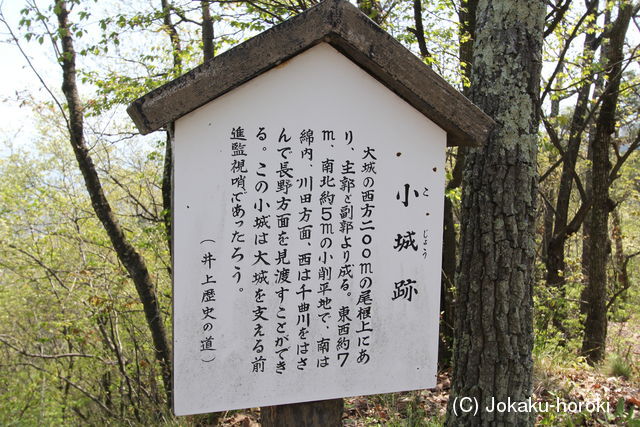 小城跡
こじょう
大城の西方二〇〇mの尾根上にあ
り、主郭と副郭より成る。東西約7
m、南北約5mの小削平地で、南は
綿内、川田方面、西は千曲川をはさ
んで長野方面を見渡すことができ
る。この小城は大城を支える前
進監視哨であったろう。
(井上歴史の道)
(C) Jokaku-horoki